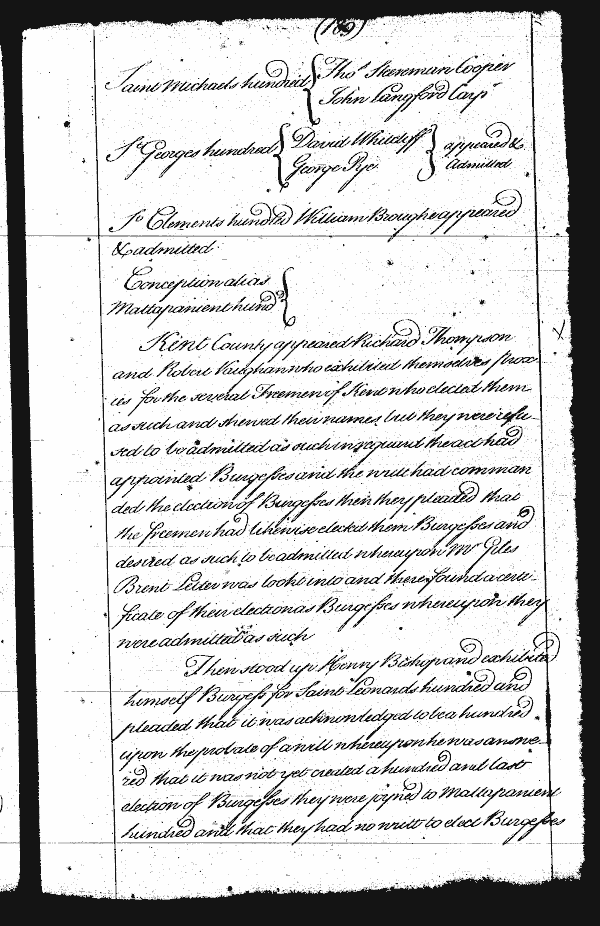 (189)
Saint Michaels hundred { Thos Steerman Cooper
John Langford Carpr
St Georges hundred { David Whitcliff } appeared &
George Pye Admitted
St Clements hundred William Broughe appeared
& admitted
Conception alias
Mattapanient hund {
Kent County appeared Richard Thompson
and Robert Vaughan who exhibited themselves prox-
ies for the several Freemen of Kent who elected them
as such and shewed their names, but they were refu-
sed to be admitted as such in reguard the act had
appointed Burgesses and the writt had comman
ded the election of Burgesses then they pleaded that
the freemen had likewise elected them Burgesses and
desired as such to be admitted whereupon Mr Giles
Brent Letter was lookt into and there found a certi-
ficate of their election as Burgesses whereupon they
were admitted as such
Then stood up Henry Bishop and exhibited
himself Burgess for Saint Leonards hundred and
pleaded that it was acknowledged to be a hundred
upon the probate of a will whereupon he was answe-
red that it was not yet created a hundred and last
election of Burgesses they were joyned to Mattapanient
hundred and that they had no writt to elect Burgesses